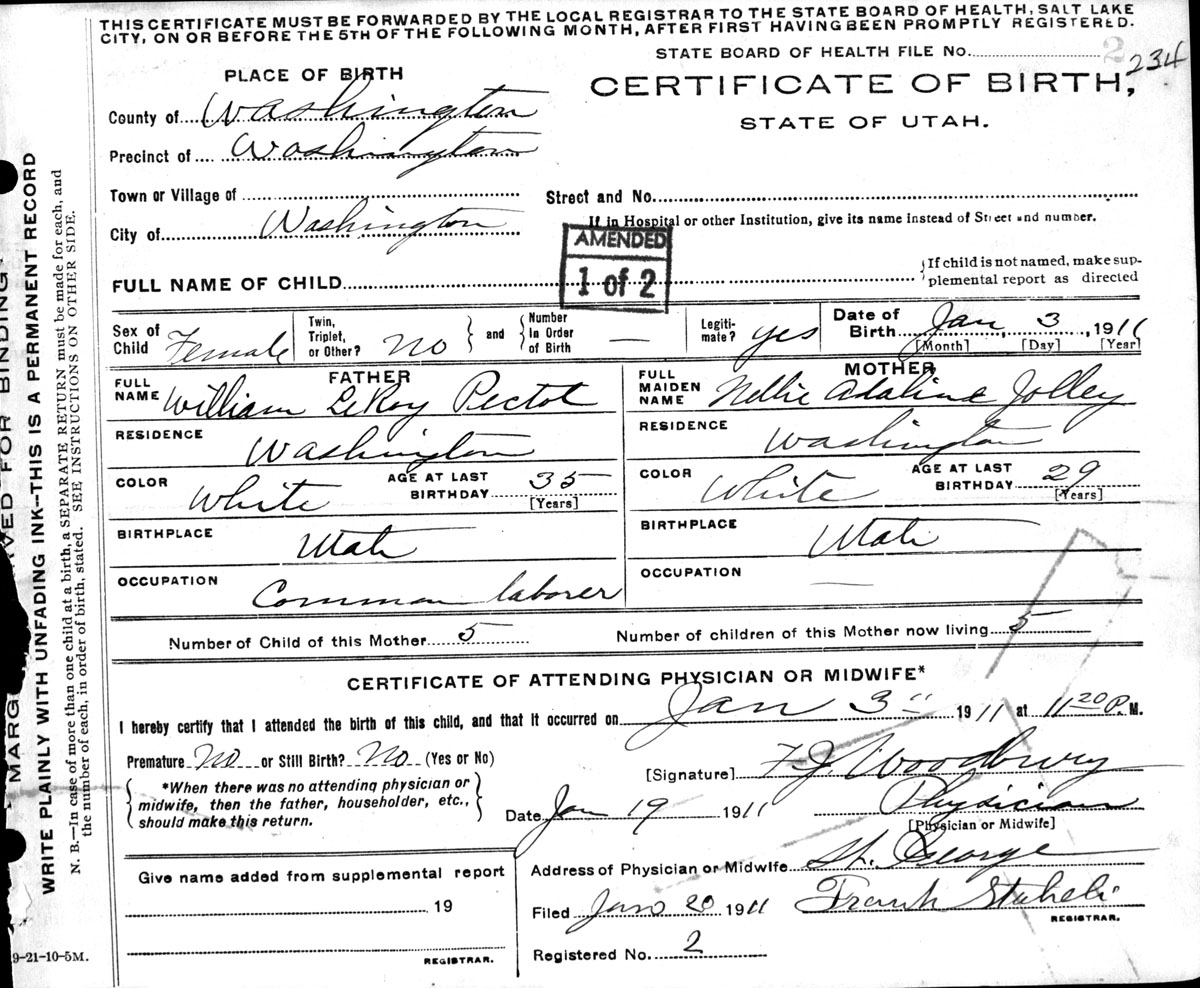 THIS CERTIFICATE MUST BE FORWARDED BY THE LOCAL REGISTRAR TO THE STATE BOARD OF HEALTH, SALT LAKE
CITY, ON OR BEFORE THE 5TH OF THE FOLLOWING MONTH, AFTER FIRST HAVING BEEN PROMPTLY REGISTERED.
STATE BOARD OF HEALTH FILE NO. 2 234
PLACE OF BIRTH
CERTIFICATE OF BIRTH,
STATE OF UTAH.
County of Washington
Precinct of Washington
Town or Village of
Street and No.
If in Hospital or other Institution, give its name instead of Street and number.
City of Washington
AMENDED
1 of 2
FULL NAME OF CHILD
If child is not named, make sup-
plemental report as directed
Sex of Child Female
Twin, Triplet, or Other? No
and Number In Order of Birth —
Legiti-mate? yes
Date of Birth Jan, 3, 1911
[Month] [Day] [Year]
FATHER
FULL NAME William LeRoy Pectol
MOTHER
FULL MAIDEN NAME Nellie Adaline Jolley
RESIDENCE Washington
RESIDENCE Washington
COLOR White AGE AT LAST BIRTHDAY 35 [Years]
COLOR White AGE AT LAST BIRTHDAY 29 [Years]
BIRTHPLACE Utah
BIRTHPLACE Utah
OCCUPATION Common laborer
OCCUPATION —
Number of Child of this Mother 5 Number of children of this Mother now living 5
CERTIFICATE OF ATTENDING PHYSICIAN OR MIDWIFE*
I hereby certify that I attended the birth of this child, and that it occurred on Jan 3" 1911 at 11 20 P. M.
Premature No or Still Birth? No (Yes or No)
*When there was no attending physician or
midwife, then the father, householder, etc.,
should make this return.
[Signature] F. J. Woodbury
Date Jan 19 1911 Physician
[Physician or Midwife]
Address of Physician or Midwife St. George
Give name added from supplemental report
19
REGISTRAR.
Filed Jan 20 1911 Frank Staheli
REGISTRAR.
Registered No. 2
9-21-10-5M.
WRITE PLAINLY WITH UNFADING INK—THIS IS A PERMANENT RECORD
N. B.—In case of more than one child at a birth, a SEPARATE RETURN must be made for each, and
the number of each, in order of birth, stated. SEE INSTRUCTIONS ON OTHER SIDE.
FOR BINDING